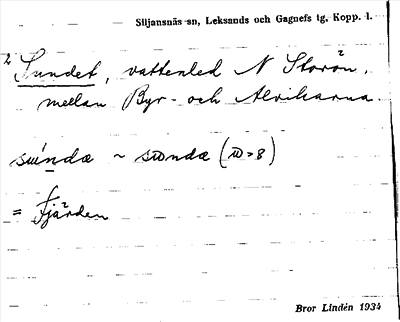 Siljansnäs sn, Leksands och Gagnefs tg, Kopp. l.
2 Sundet, vattenled N Storön 2,
mellan Byr- och Alvikarna.
= Fjärden 2
Bror Lindén 1934